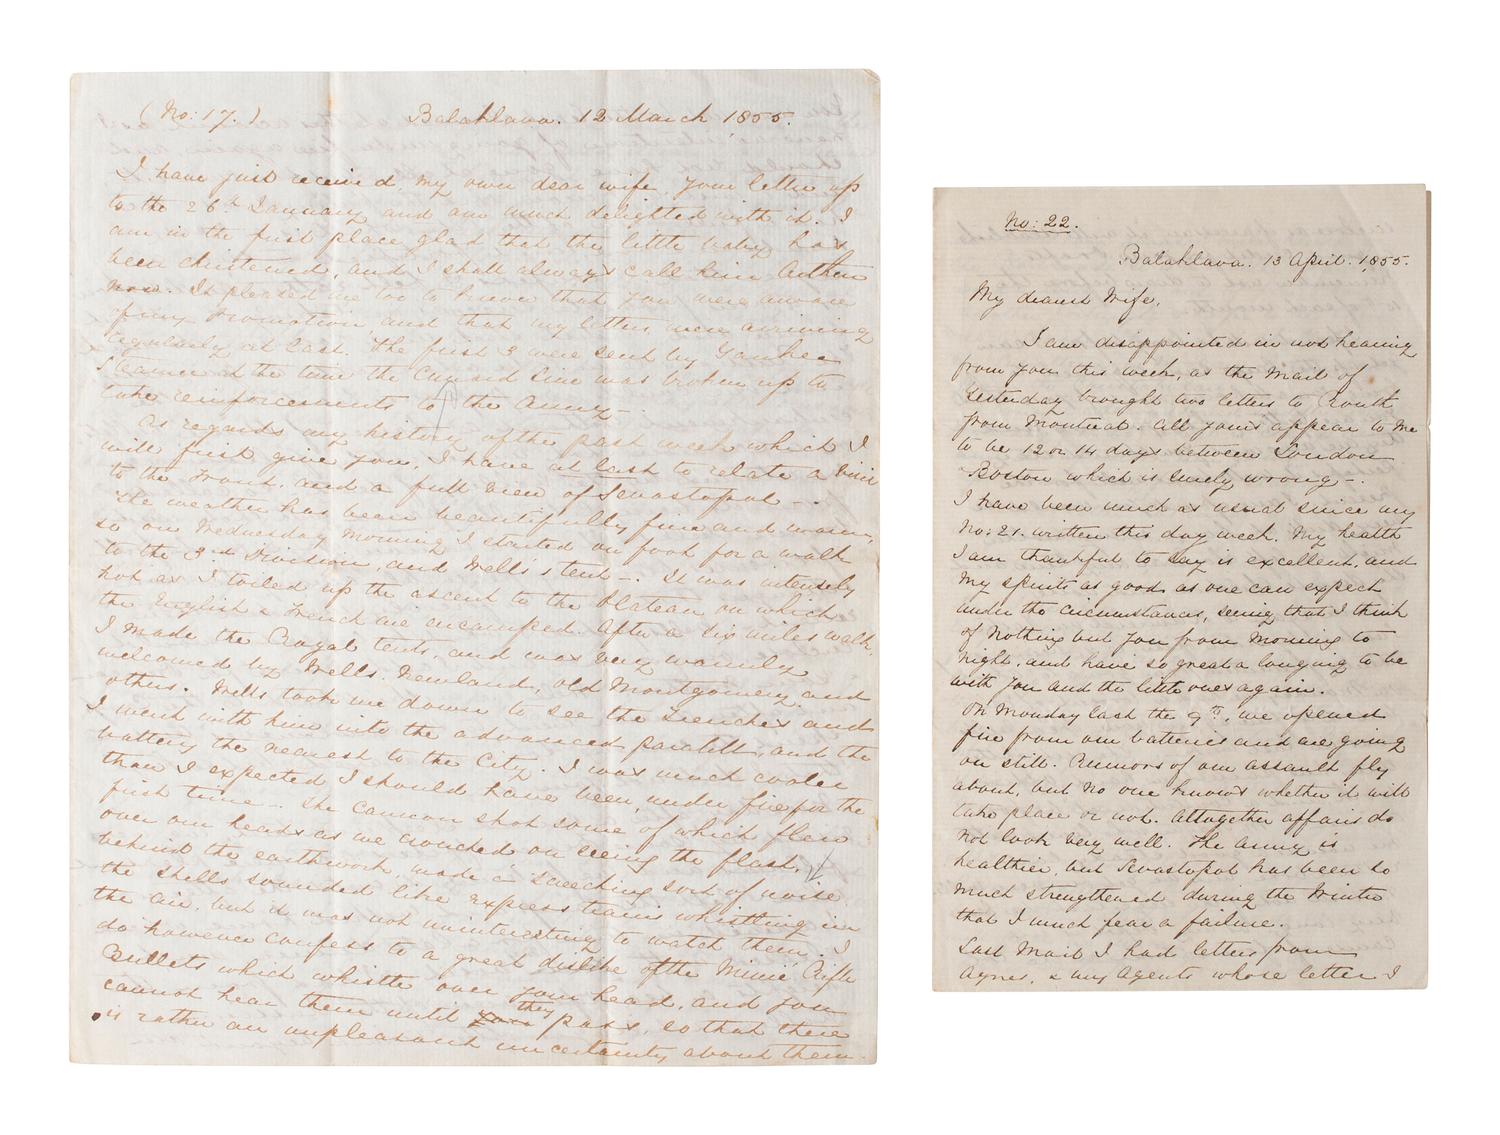 (No: 17.) Balaklava. 12 March 1855.
I have just received, my own dear wife, your letter up
to the 26th January and am much delighted with it. I
am in the first place glad that the little baby has
been christened, and I shall always call him Arthur
now. It pleased me too to know that you were aware
of my Promotion, and that my letters were arriving
regularly at last. The first 3 were sent by Yankee
Steamer at the time the Cunard Line was broken up to
take reinforcements to the Army –
As regards my history of the past week which I
will first give you, I have at last to relate a visit
to the Front, and a full view of Sevastopol –.
The weather has been beautifully fine and warm,
so on Wednesday morning I started on foot for a walk
to the 3rd Division, and Wells's tent –. It was intensely
hot as I toiled up the ascent to the Plateau on which
the English & French are encamped. After a six miles walk,
I made the Royal tents, and was very warmly
welcomed by Wells, Newland, old Montgomery and
others. Wells took me down to see the trenches and
I went with him into the advanced parallel, and the
battery the nearest to the City. I was much cooler
than I expected I should have been, under fire for the
first time –. The cannon shot some of which flew
over our heads as we crouched on seeing the flash,
behind the earthwork, made a screeching sort of noise.
the shells sounded like express trains whistling in
the air, but it was not uninteresting to watch them. I
do however confess to a great dislike of the Minié Rifle
Bullets which whistle over your head, and you
cannot hear them until they pass, so that there
is rather an unpleasant uncertainty about them.
No: 22.
Balaklava. 13 April. 1855.
My dearest Wife,
I am disappointed in not hearing
from you this week, as the Mail of
Yesterday brought two letters to Routh
from Montreal. All yours appear to me
to be 12 or 14 days between London
Boston which is surely wrong –.
I have been much as usual since my
No: 21. written this day week. My health
I am thankful to say is excellent, and
my spirits as good as one can expect
under the circumstances, seeing that I think
of nothing but you from Morning to
Night, and have so great a longing to be
with you and the little ones again.
On Monday last the 9th, we opened
fire from our batteries and are going
on still. Rumors of our assault fly
about, but no one knows whether it will
take place or not. Altogether affairs do
not look very well. The Army is
healthier, but Sevastopol has been so
much strengthened during the Winter
that I much fear a failure.
Last Mail I had letters from
Agnes, & my Agents whose letter I